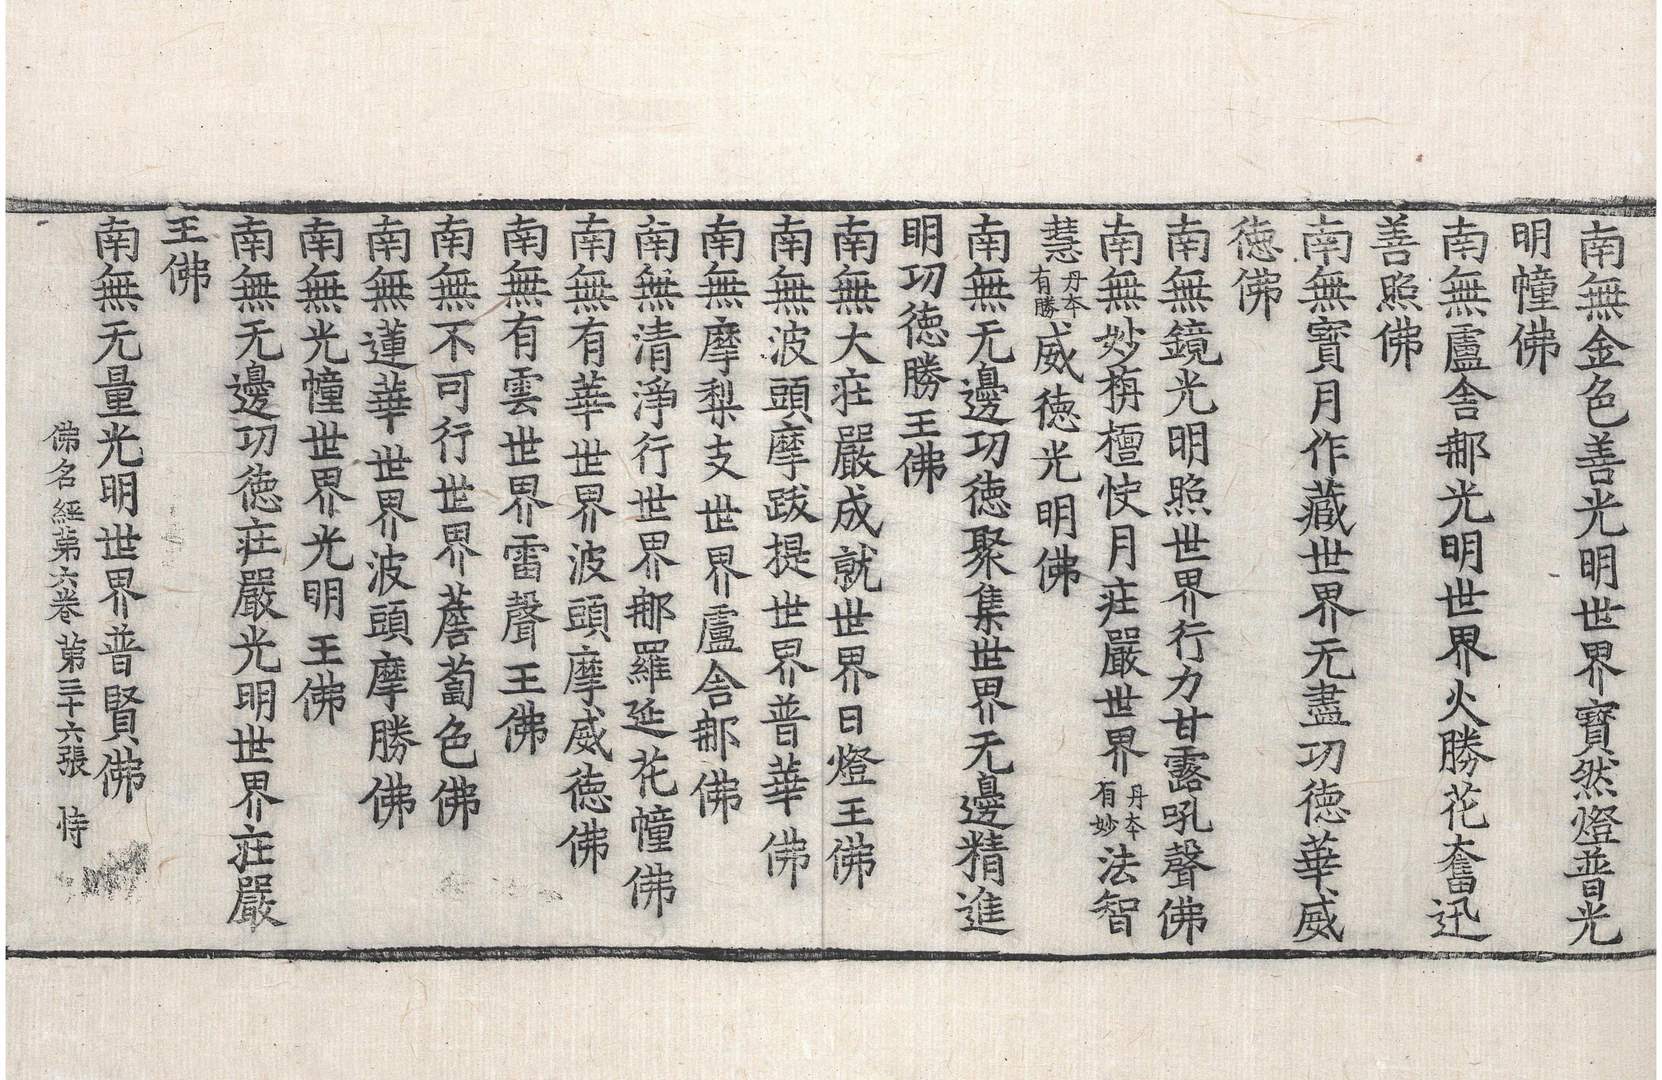 南無金色善光明世界寶然燈普光
明幢佛
南無盧舍那光明世界火勝花奮迅
善照佛
南無寶月作藏世界无盡功德華威
德佛
南無鏡光明照世界行力甘露吼聲佛
南無妙栴檀快月庄嚴世界丹本有妙法智
慧丹本有勝威德光明佛
南無无邊功德聚集世界无邊精進
明功德勝王佛
南無大庄嚴成就世界日燈王佛
南無波頭摩跋提世界普華佛
南無摩梨支世界盧舍那佛
南無清淨行世界那羅延花幢佛
南無有華世界波頭摩威德佛
南無有雲世界雷聲王佛
南無不可行世界薝蔔色佛
南無蓮華世界波頭摩勝佛
南無光幢世界光明王佛
南無无邊功德庄嚴光明世界庄嚴
王佛
南無无量光明世界普賢佛
佛名經第六卷 第三十六張 恃